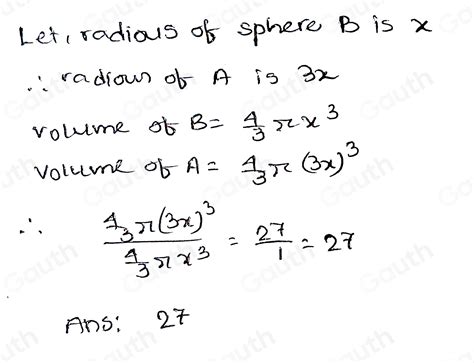 Let, radious of sphere B is x
∴ radious of A is 3x
volume of B = 4/3 π x³
volume of A = 4/3 π (3x)³
∴ 4/3 π (3x)³ / 4/3 π x³ = 27/1 = 27
Ans: 27
Gauth